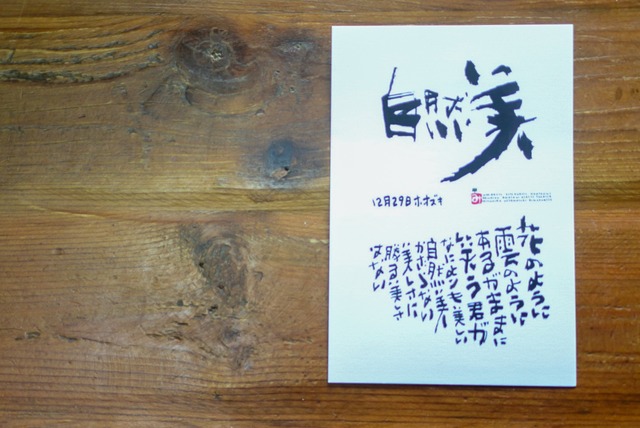 自然美
12月29日ホオズキ
花のように
雲のように
あるがままに
笑う君が
なにより美しい
自然美
かざらない
美しさに
勝る美しさ
はない